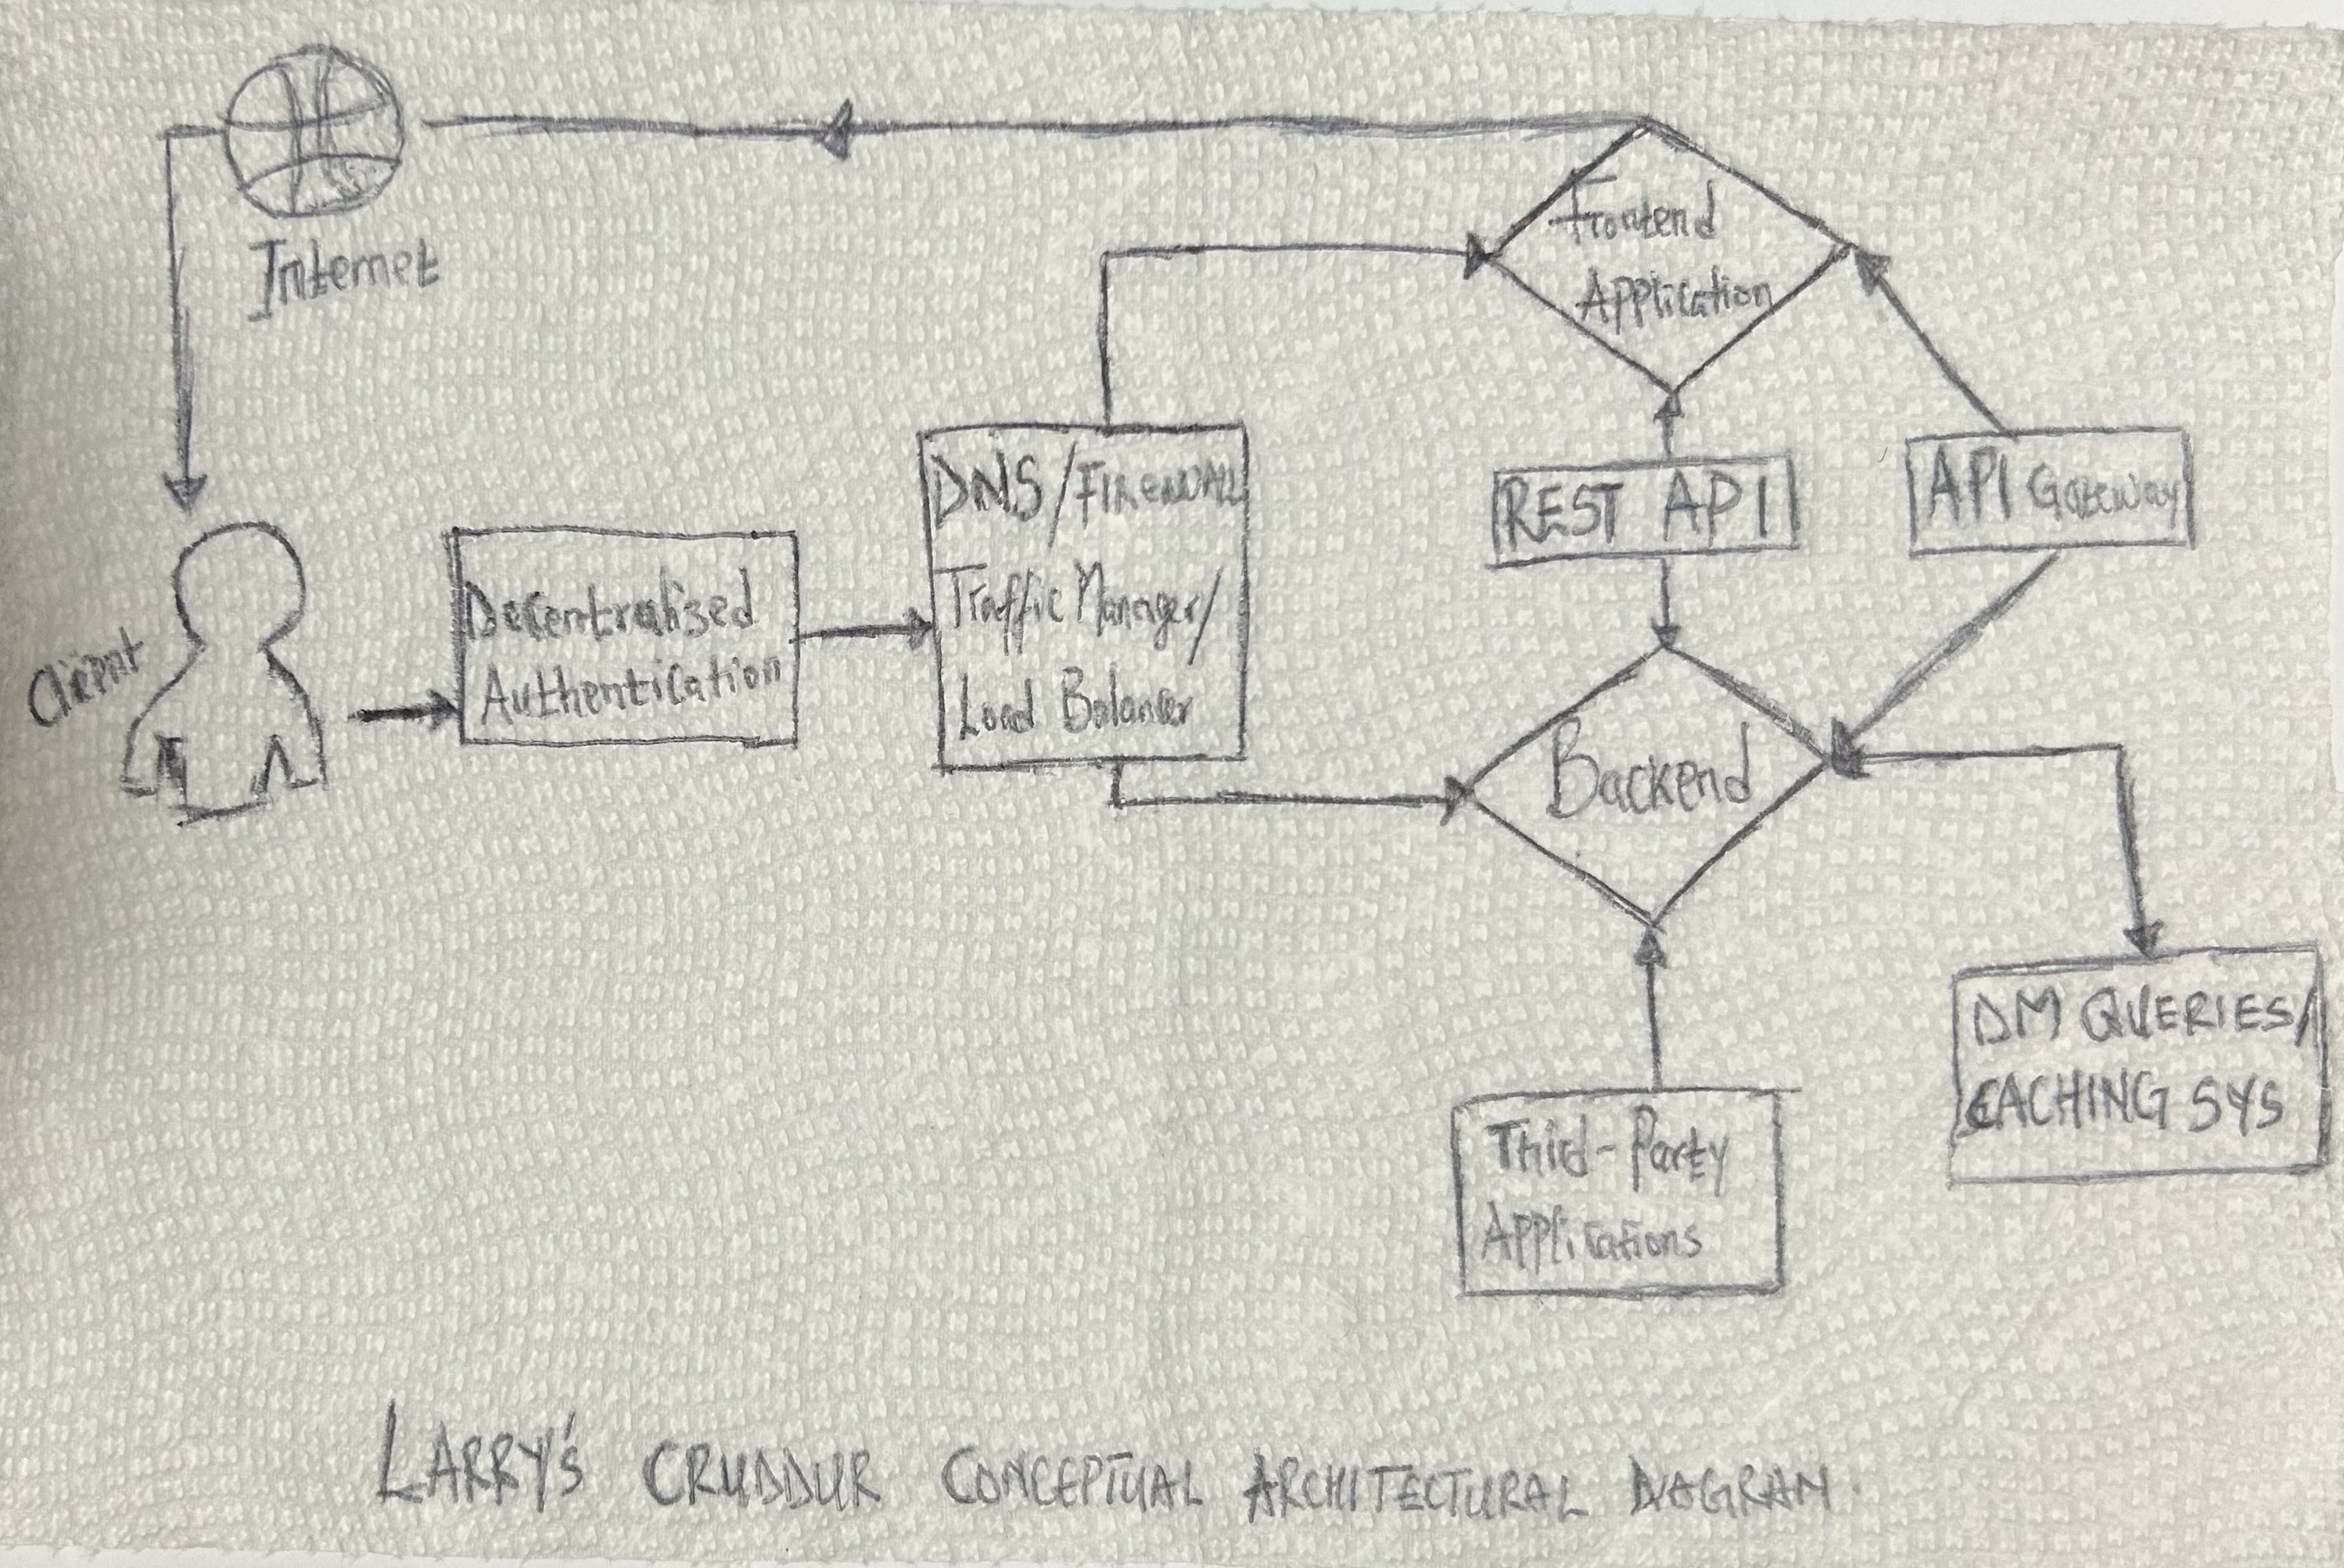 Internet
Client
Decentralised
Authentication
DNS/FIREWALL
Traffic Manager/
Load Balancer
Frontend
Application
REST API
API Gateway
Backend
DM QUERIES/
CACHING SYS
Third-Party
Applications
LARRY's CRUDDUR CONCEPTUAL ARCHITECTURAL DIAGRAM.